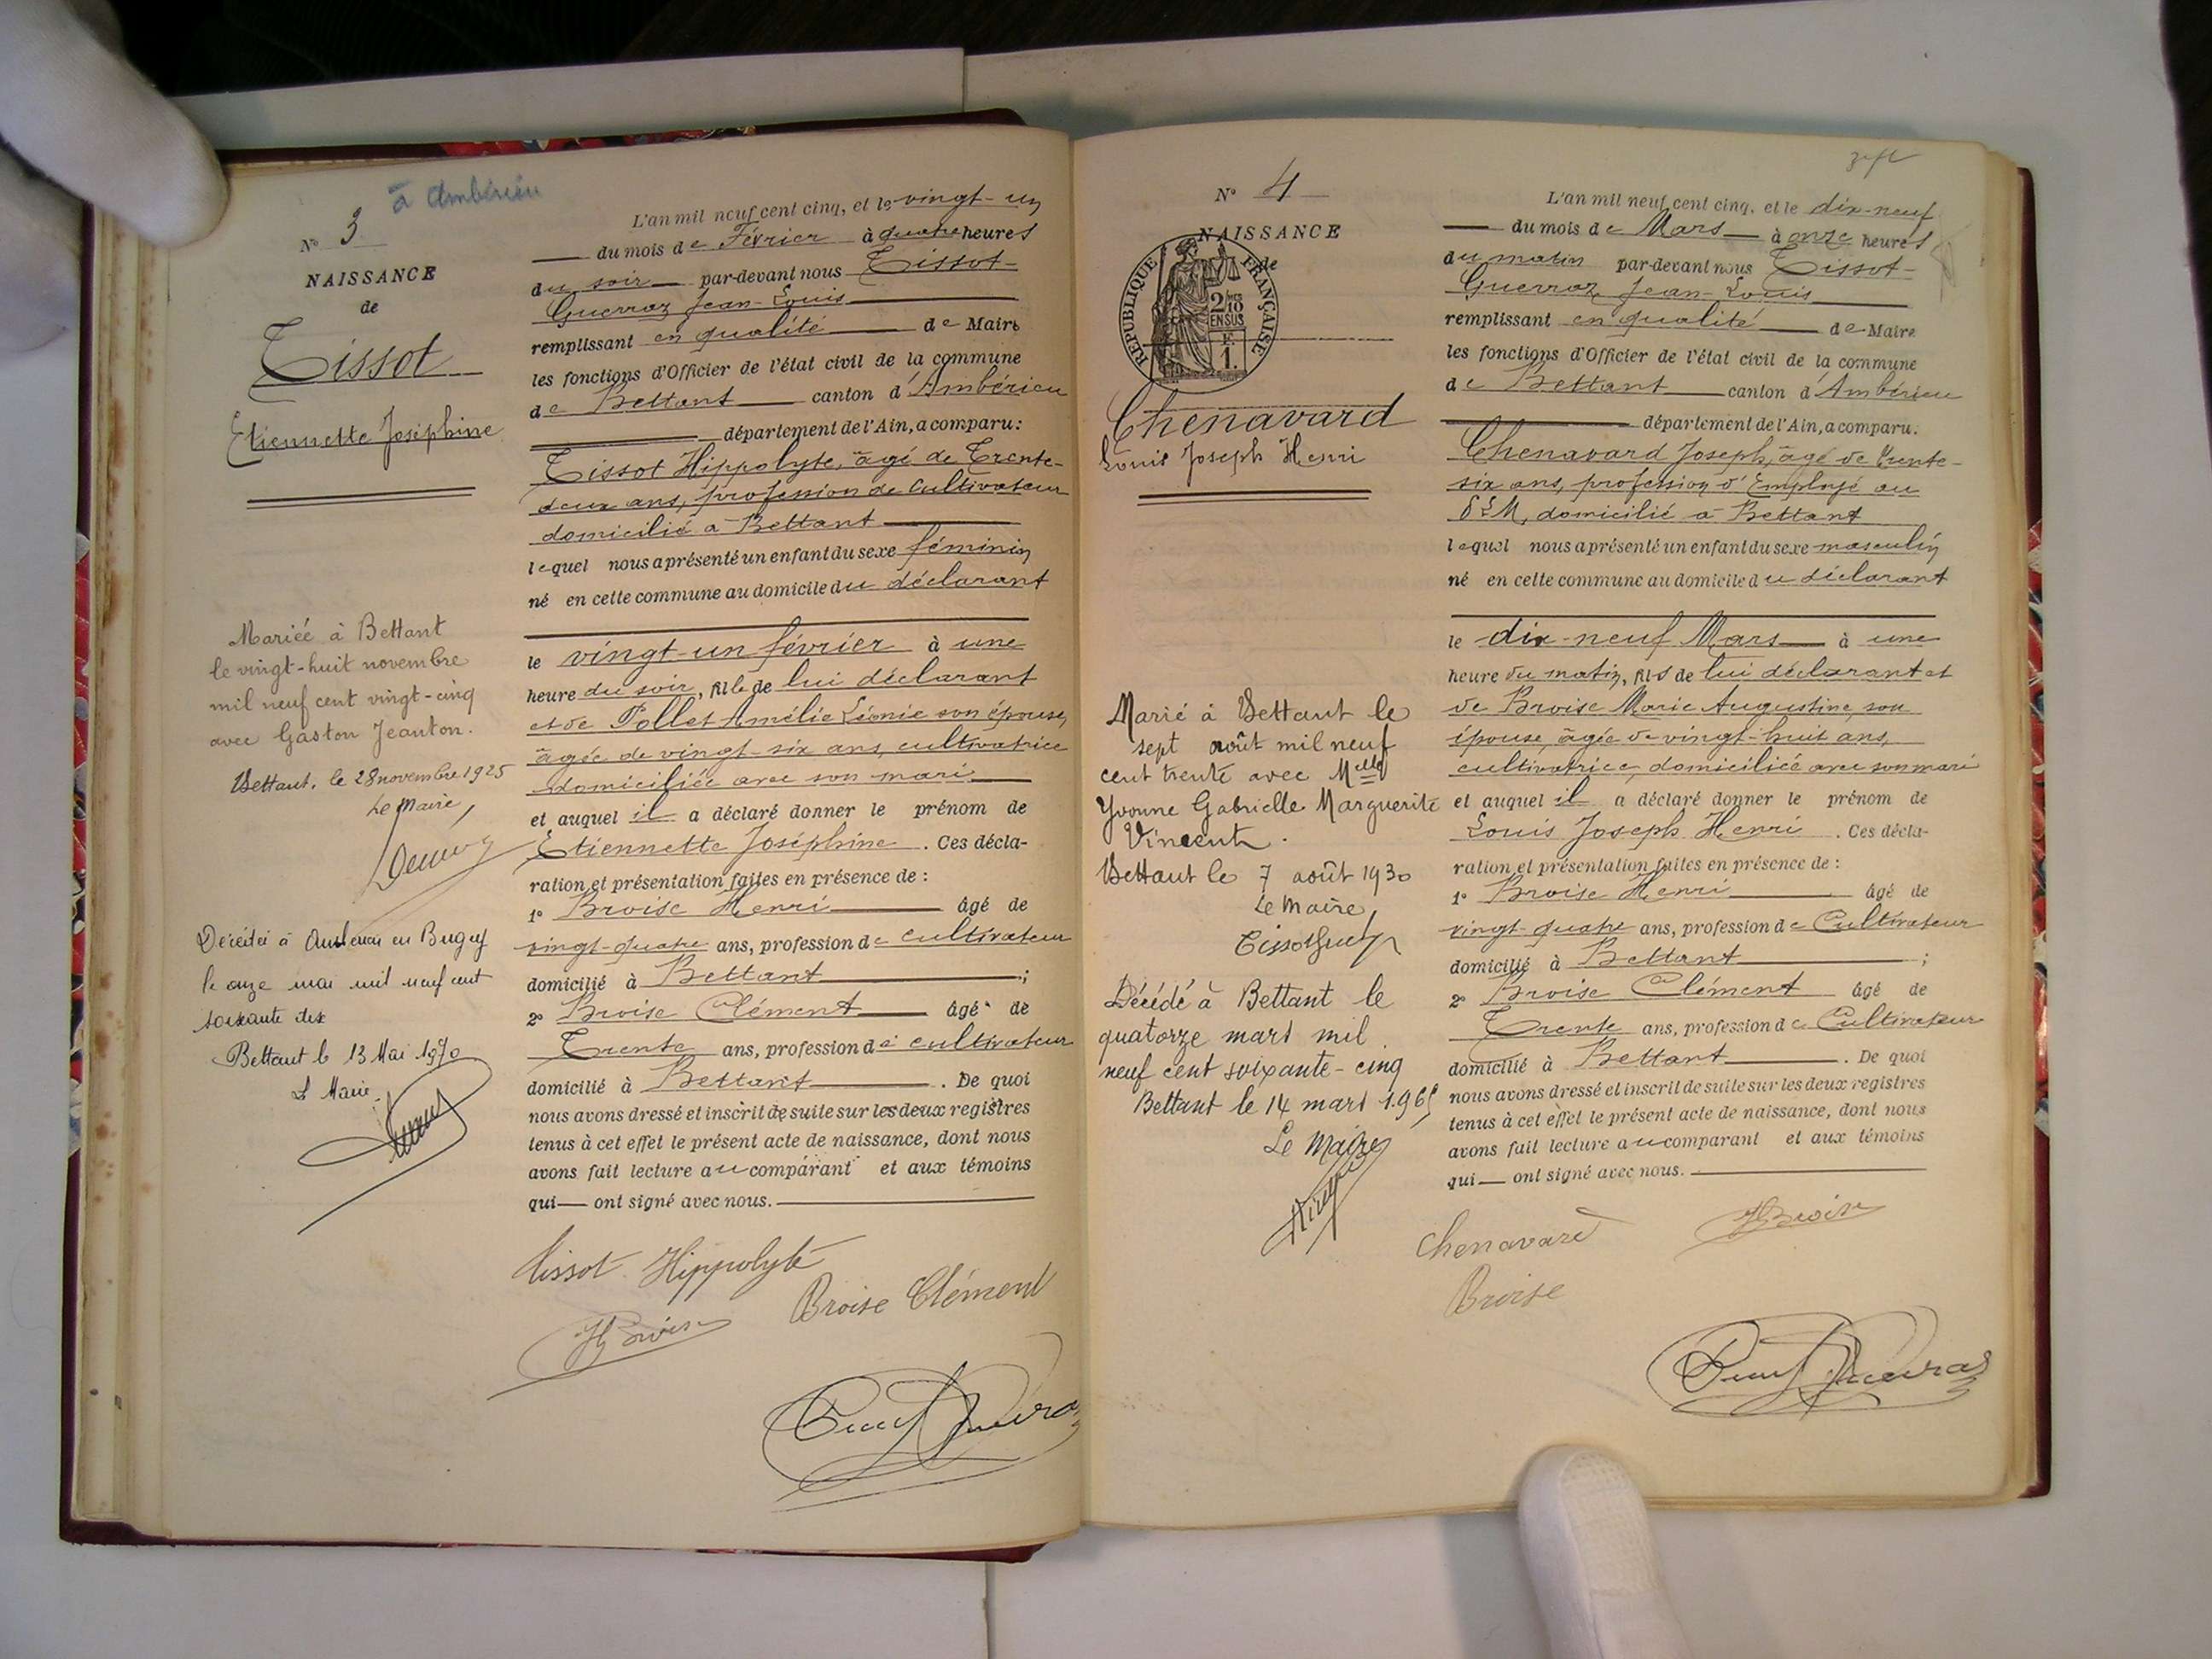 à Ambérieu
N° 3
NAISSANCE
de
Tissot
Etiennette Joséphine
Mariée à Bettant
le vingt-huit novembre
mil neuf cent vingt-cinq
avec Gaston Jeanton.
Bettant, le 28 novembre 1925
Le Maire,
Décédée à en Bugey
le onze mai mil neuf cent
soixante dix
Bettant le 13 Mai 1970
Le Maire
L'an mil neuf cent cinq, et le vingt-un
du mois de Février à quatre heures
du soir par-devant nous Tissot-
Guerraz Jean-Louis
remplissant en qualité de Maire
les fonctions d'Officier de l'état civil de la commune
de Bettant canton d'Ambérieu
département de l'Ain, a comparu:
Tissot Hippolyte, âgé de Trente-
deux ans, profession de Cultivateur
domicilié à Bettant
lequel nous a présenté un enfant du sexe féminin
né en cette commune au domicile du déclarant
le vingt-un février à une
heure du soir, fille de lui déclarant
et de Pollet Amélie Léonie son épouse,
âgée de vingt-six ans, cultivatrice
domiciliée avec son mari
et auquel il a déclaré donner le prénom de
Etiennette Joséphine. Ces décla-
ration et présentation faites en présence de :
1° Broise Henri âgé de
vingt-quatre ans, profession de cultivateur
domicilié à Bettant ;
2° Broise Clément âgé de
Trente ans, profession de cultivateur
domicilié à Bettant. De quoi
nous avons dressé et inscrit de suite sur les deux registres
tenus à cet effet le présent acte de naissance, dont nous
avons fait lecture au comparant et aux témoins
qui ont signé avec nous.
Tissot Hippolyte
Broise Clément
HBroise
N° 4
NAISSANCE
de
RÉPUBLIQUE FRANÇAISE
2/10
EN SUS
F.
1.
Chenavard
Louis Joseph Henri
Marié à Bettant le
sept août mil neuf
cent trente avec Melle
Yvonne Gabrielle Marguerite
Vincent.
Bettant le 7 août 1930
Le Maire,
Décédé à Bettant le
quatorze mars mil
neuf cent soixante-cinq
Bettant le 14 mars 1965
Le Maire
L'an mil neuf cent cinq, et le dix-neuf
du mois de Mars à onze heures
du matin par-devant nous Tissot-
Guerraz Jean-Louis
remplissant en qualité de Maire
les fonctions d'Officier de l'état civil de la commune
de Bettant canton d'Ambérieu
département de l'Ain, a comparu:
Chenavard Joseph, âgé de Trente-
six ans, profession d'Employé au
domicilié à Bettant
lequel nous a présenté un enfant du sexe masculin
né en cette commune au domicile du déclarant
le dix-neuf Mars à une
heure du matin, fils de lui déclarant et
de Broise Marie Augustine, son
épouse, âgée de vingt-huit ans,
cultivatrice, domiciliée avec son mari
et auquel il a déclaré donner le prénom de
Louis Joseph Henri. Ces décla-
ration et présentation faites en présence de :
1° Broise Henri âgé de
vingt-quatre ans, profession de Cultivateur
domicilié à Bettant ;
2° Broise Clément âgé de
Trente ans, profession de Cultivateur
domicilié à Bettant. De quoi
nous avons dressé et inscrit de suite sur les deux registres
tenus à cet effet le présent acte de naissance, dont nous
avons fait lecture au comparant et aux témoins
qui ont signé avec nous.
Chenavard
HBroise
Broise